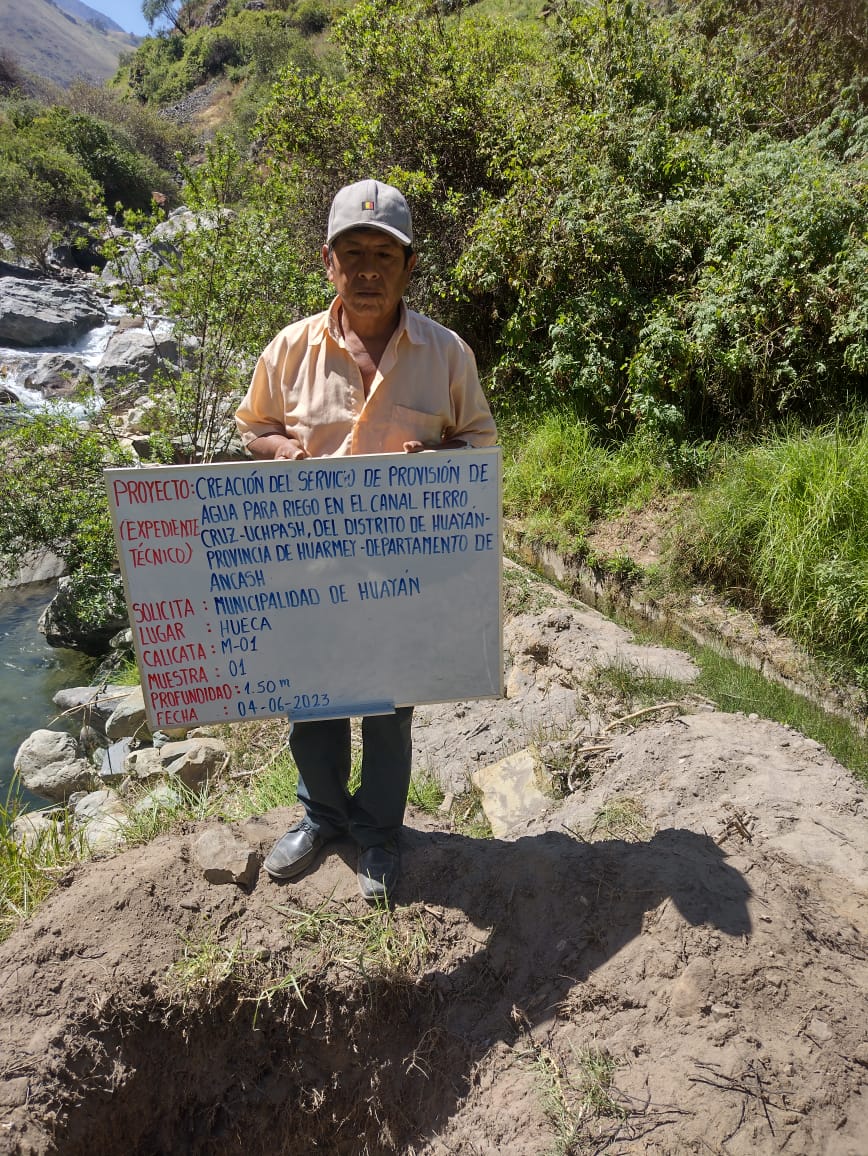 PROYECTO: CREACIÓN DEL SERVICIO DE PROVISIÓN DE
(EXPEDIENTE AGUA PARA RIEGO EN EL CANAL FIERRO
TÉCNICO) CRUZ-UCHPASH, DEL DISTRITO DE HUAYÁN-
PROVINCIA DE HUARMEY-DEPARTAMENTO DE
ANCASH
SOLICITA : MUNICIPALIDAD DE HUAYÁN
LUGAR : HUECA
CALICATA : M-01
MUESTRA : 01
PROFUNDIDAD: 1.50 m
FECHA : 04-06-2023